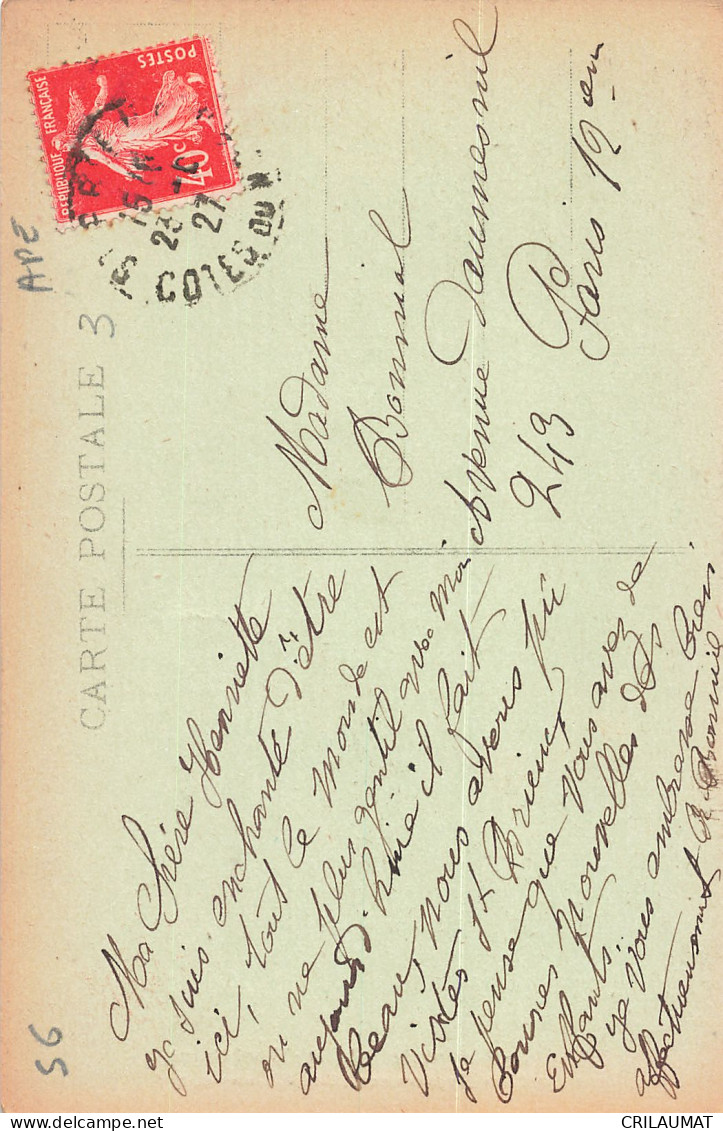 CARTE POSTALE 3
APE
56
POSTES
REPUBLIQUE FRANÇAISE
40c
15
27
COTES DU N
Ma Chère Henriette
je suis enchanté d'être
ici, tout le monde est
on ne plus gentil avec moi
aujourd'hui il fait
beau, nous avons pu
visités St Brieuc,
je pense que vous avez de
bonnes nouvelles des
Enfants.
je vous embrasse bien
affectueusement
Madame
Bonnal
Avenue Daumesnil
243
Paris 12 em
CRILAUMAT